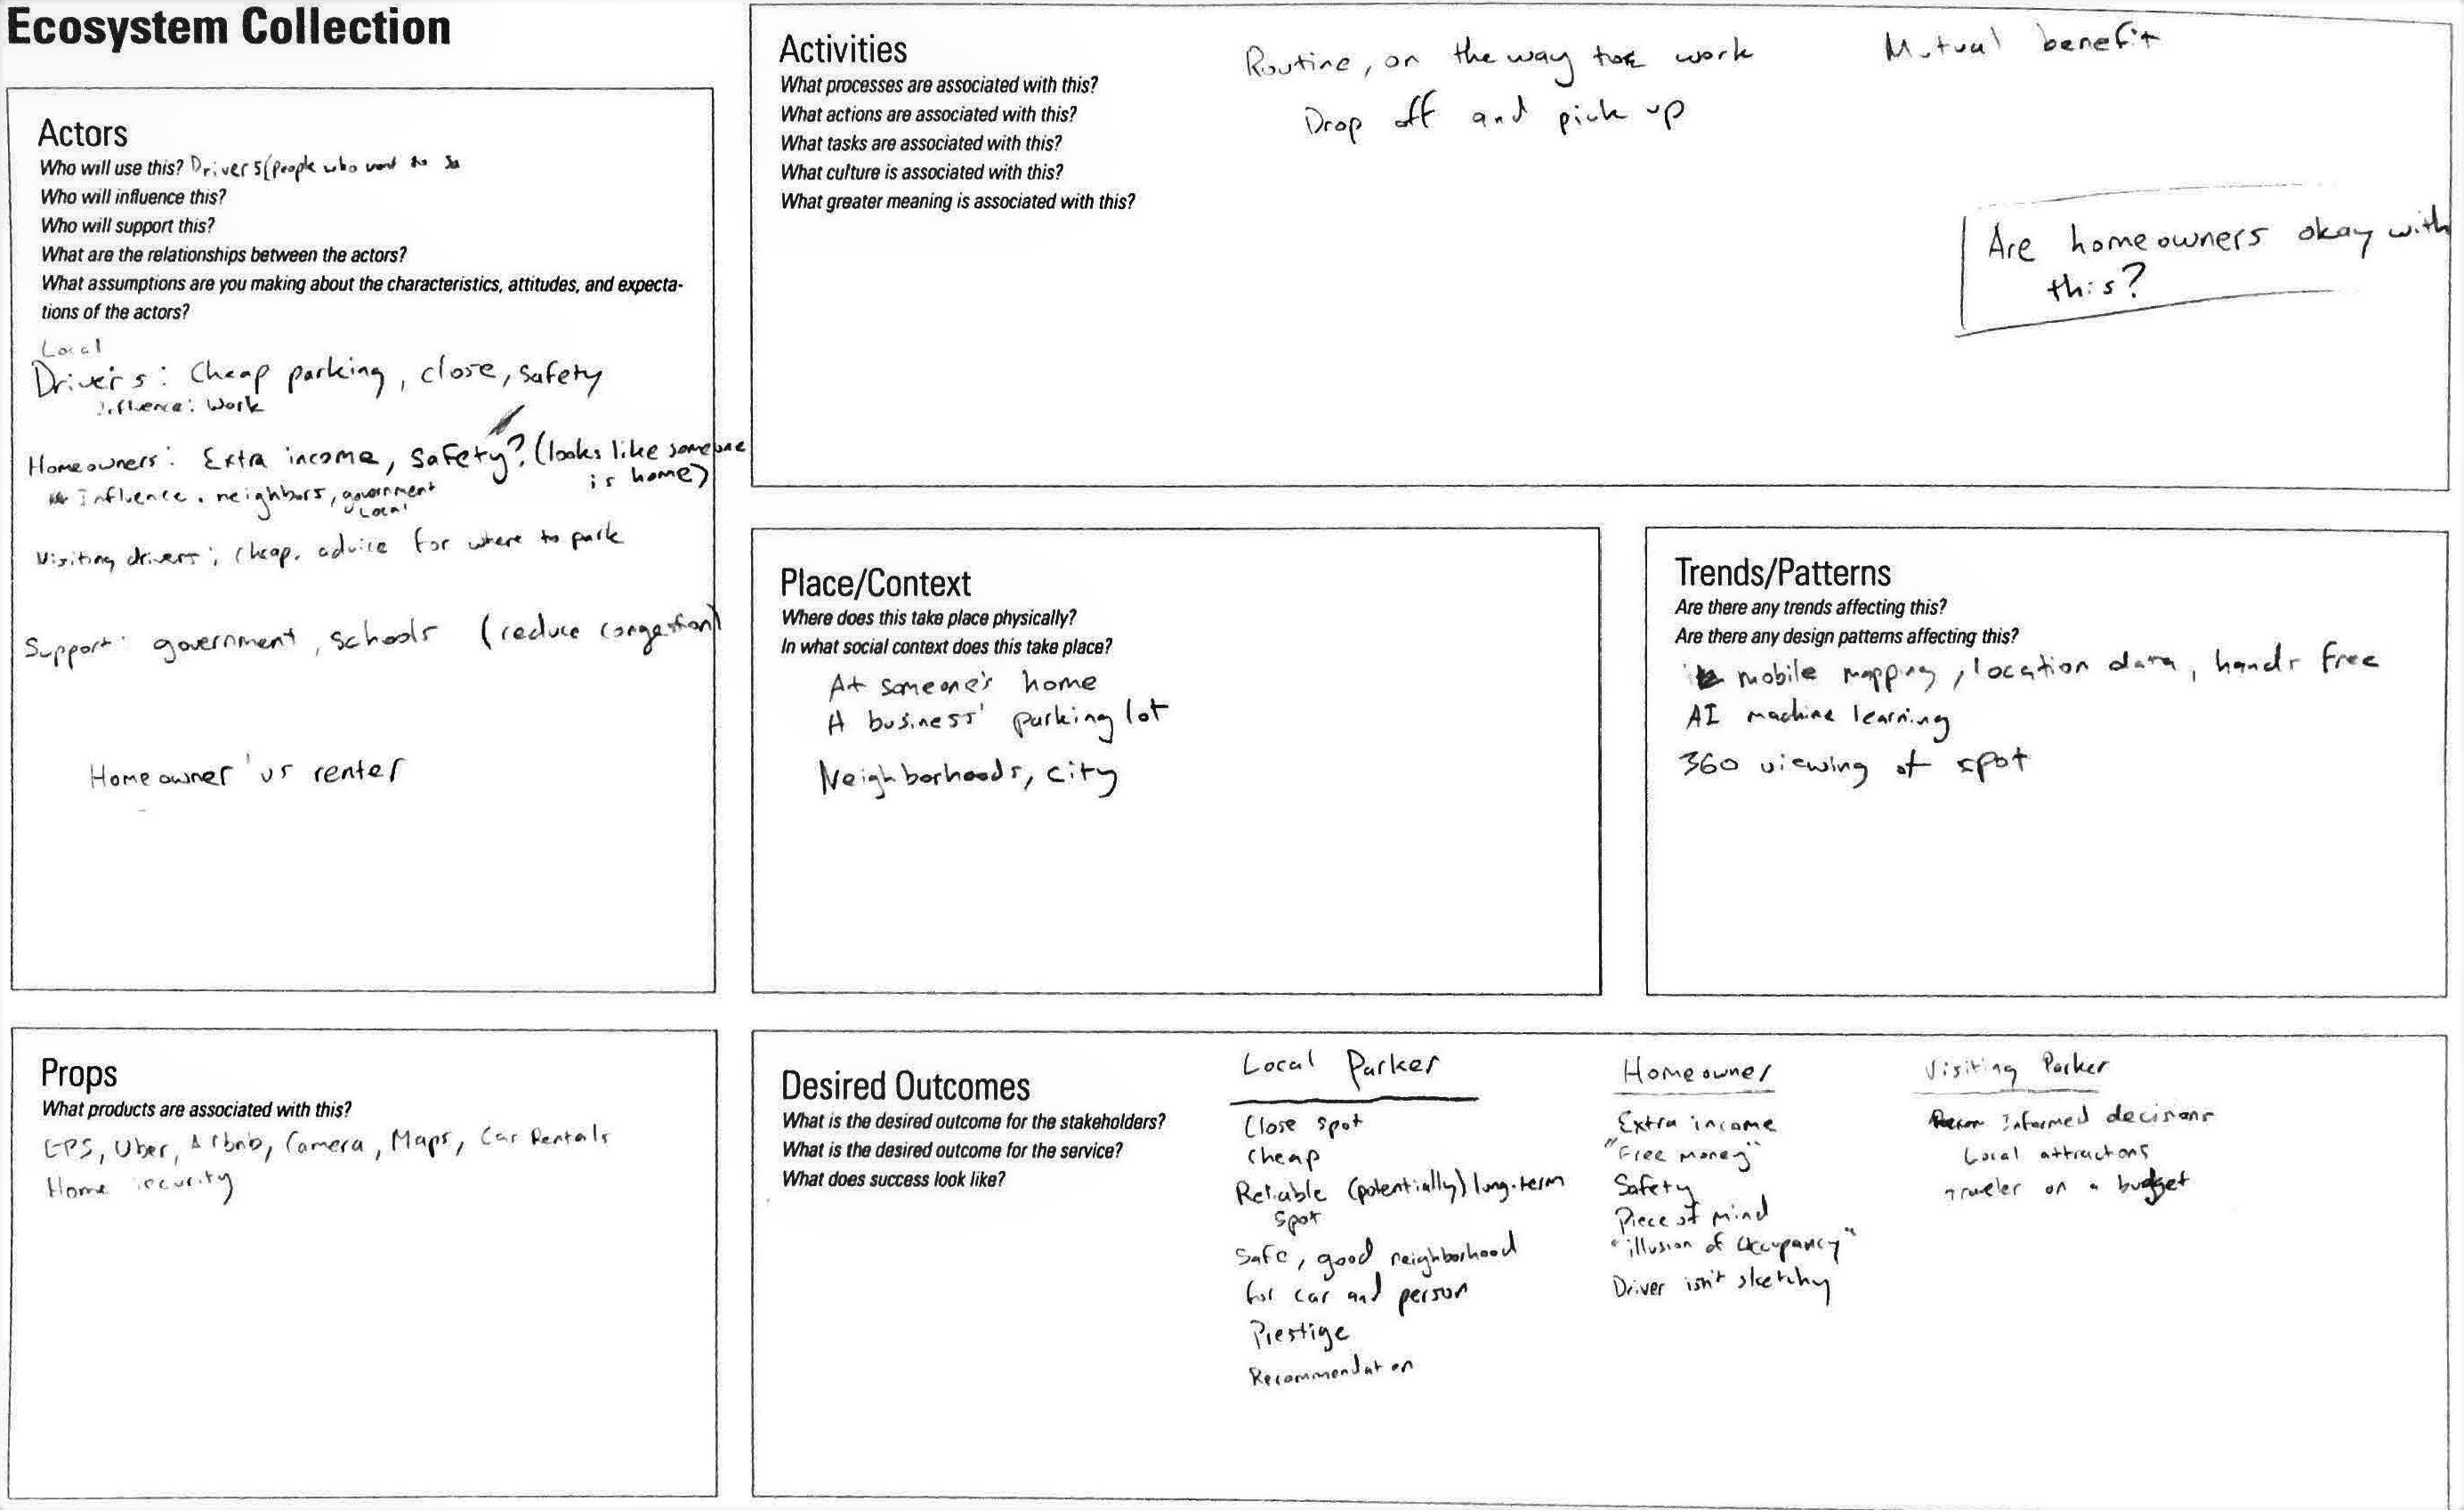 Ecosystem Collection
Actors
Who will use this? Drivers (people who want to
Who will influence this?
Who will support this?
What are the relationships between the actors?
What assumptions are you making about the characteristics, attitudes, and expecta-
tions of the actors?
Local
Drivers: Cheap parking, close, safety
Influence: Work
Homeowners: Extra income, safety? (looks like someone
is home)
Influence. neighbors, government
Local
Visiting drivers; cheap, advice for where to park
Support: government, schools (reduce congestion)
Homeowner vs renter
Activities
What processes are associated with this?
What actions are associated with this?
What tasks are associated with this?
What culture is associated with this?
What greater meaning is associated with this?
Routine, on the way to work
Drop off and pick up
Mutual benefit
Are homeowners okay with
this?
Place/Context
Where does this take place physically?
In what social context does this take place?
At someone's home
A business' parking lot
Neighborhoods, city
Trends/Patterns
Are there any trends affecting this?
Are there any design patterns affecting this?
mobile mapping, location data, hands free
AI machine learning
360 viewing of spot
Props
What products are associated with this?
GPS, Uber, Airbnb, Camera, Maps, Car Rentals
Home security
Desired Outcomes
What is the desired outcome for the stakeholders?
What is the desired outcome for the service?
What does success look like?
Local Parker
Close spot
Cheap
Reliable (potentially) long-term
spot
Safe, good neighborhood
for car and person
Prestige
Recommendation
Homeowner
Extra income
"Free money"
Safety
Piece of mind
"illusion of Occupancy"
Driver isn't sketchy
Visiting Parker
Informed decisions
Local attractions
Traveler on a budget